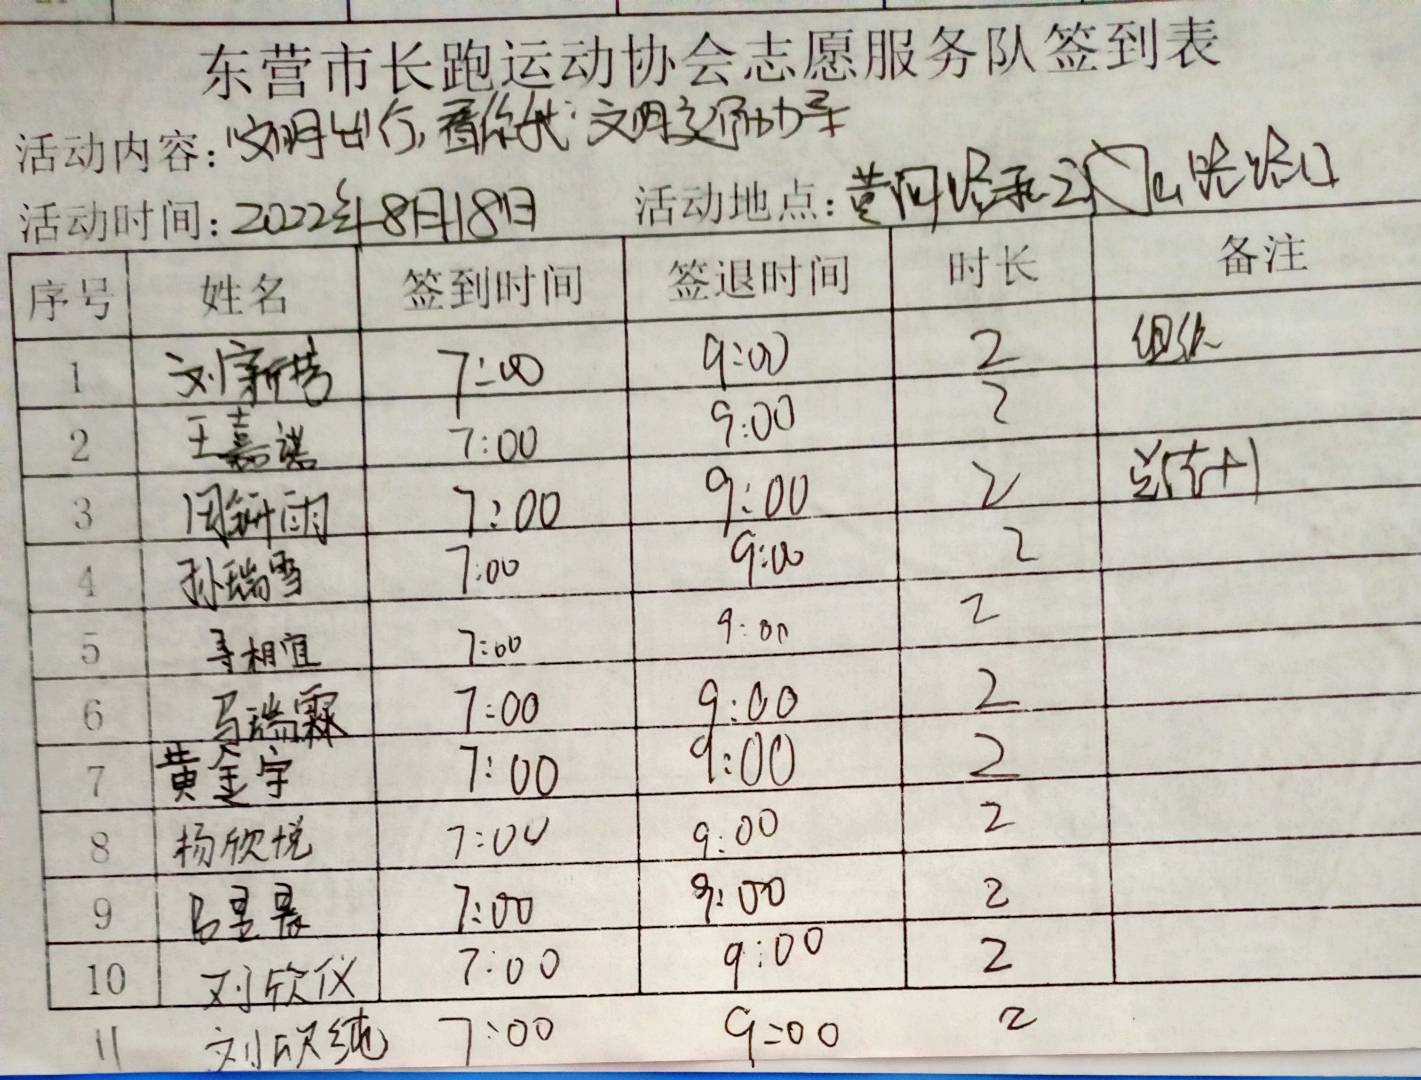 东营市长跑运动协会志愿服务队签到表
活动内容:"文明出行,看你我"文明交通劝导
活动时间:2022年8月18日 活动地点:黄河路和路路口
序号 姓名 签到时间 签退时间 时长 备注
1 刘 7:00 9:00 2 组织
2 王嘉诺 7:00 9:00 2
3 周妍雨 7:00 9:00 2 宣传+1
4 孙瑞雪 7:00 9:00 2
5 寻相宜 7:00 9:00 2
6 马瑞霖 7:00 9:00 2
7 黄金宇 7:00 9:00 2
8 杨欣悦 7:00 9:00 2
9 吕昱晨 7:00 9:00 2
10 刘欣仪 7:00 9:00 2
11 刘欣纯 7:00 9:00 2